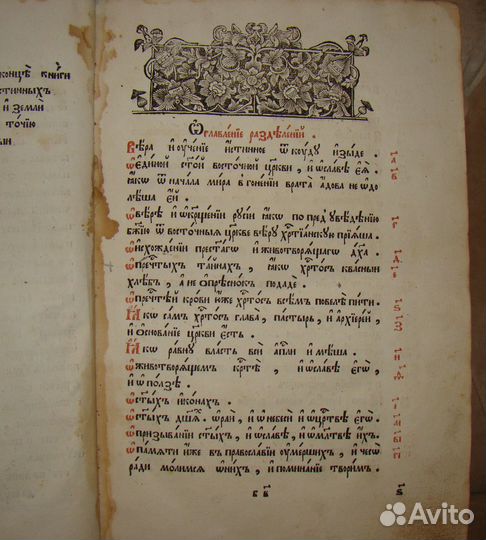 конце книги
стичныхъ
и земли
точїю
Ѡглавленїе раздѣленїй.
Вѣра и оученїе истинное ѿкоуду изыде.
Ѡединой ст҃ой восточной цр҃кви, и ѡславѣ еѧ̀
ꙗкѡ ѿ начала мира в гоненїи врата адова не ѡдо
лѣша ей.
Ѡвѣре и ѡкрещенїи руси ꙗкѡ по предъувѣдѣнїю
бж҃їю ѿ восточныѧ цр҃кве вѣру хрⷭ҇тїанскую прїѧша.
Ѡисхожденїи прест҃агѡ и животворѧщагѡ дх҃а.
Ѡпречⷭ҇тыхъ тайнахъ, ꙗкѡ хрⷭ҇тосъ квасныи
хлѣбъ, а не ѡпрѣснокъ подаде.
Ѡпречⷭ҇тей крови юже хрⷭ҇тосъ всѣмъ повелѣ пити.
Ꙗкѡ самъ хрⷭ҇тосъ глава, пастырь, и архїерей,
и ѡснованїе цр҃кви есть.
Ꙗкѡ равну власть вси апⷭ҇ли имѣша.
Ѡживотворѧщемъ крⷭ҇тѣ, и ѡславѣ егѡ̀,
и ѡпользѣ.
Ѡст҃ыхъ иконахъ.
Ѡст҃ыхъ дш҃ахъ. ѡраи, и ѡнебеси и ѡцрⷭ҇твѣ егѡ̀.
Ѡпризыванїи ст҃ыхъ, и ѡславѣ, и ѡмл҃твѣ ихъ.
Ѡпамѧти иже въ православїи оумершихъ, и чесѡ
ради молимсѧ ѡнихъ, и поминанїе творимъ.
а
в
г
д
е
ѕ
з
и
ѳ
і
аі
ві
гі
б в
ѕ
Avito